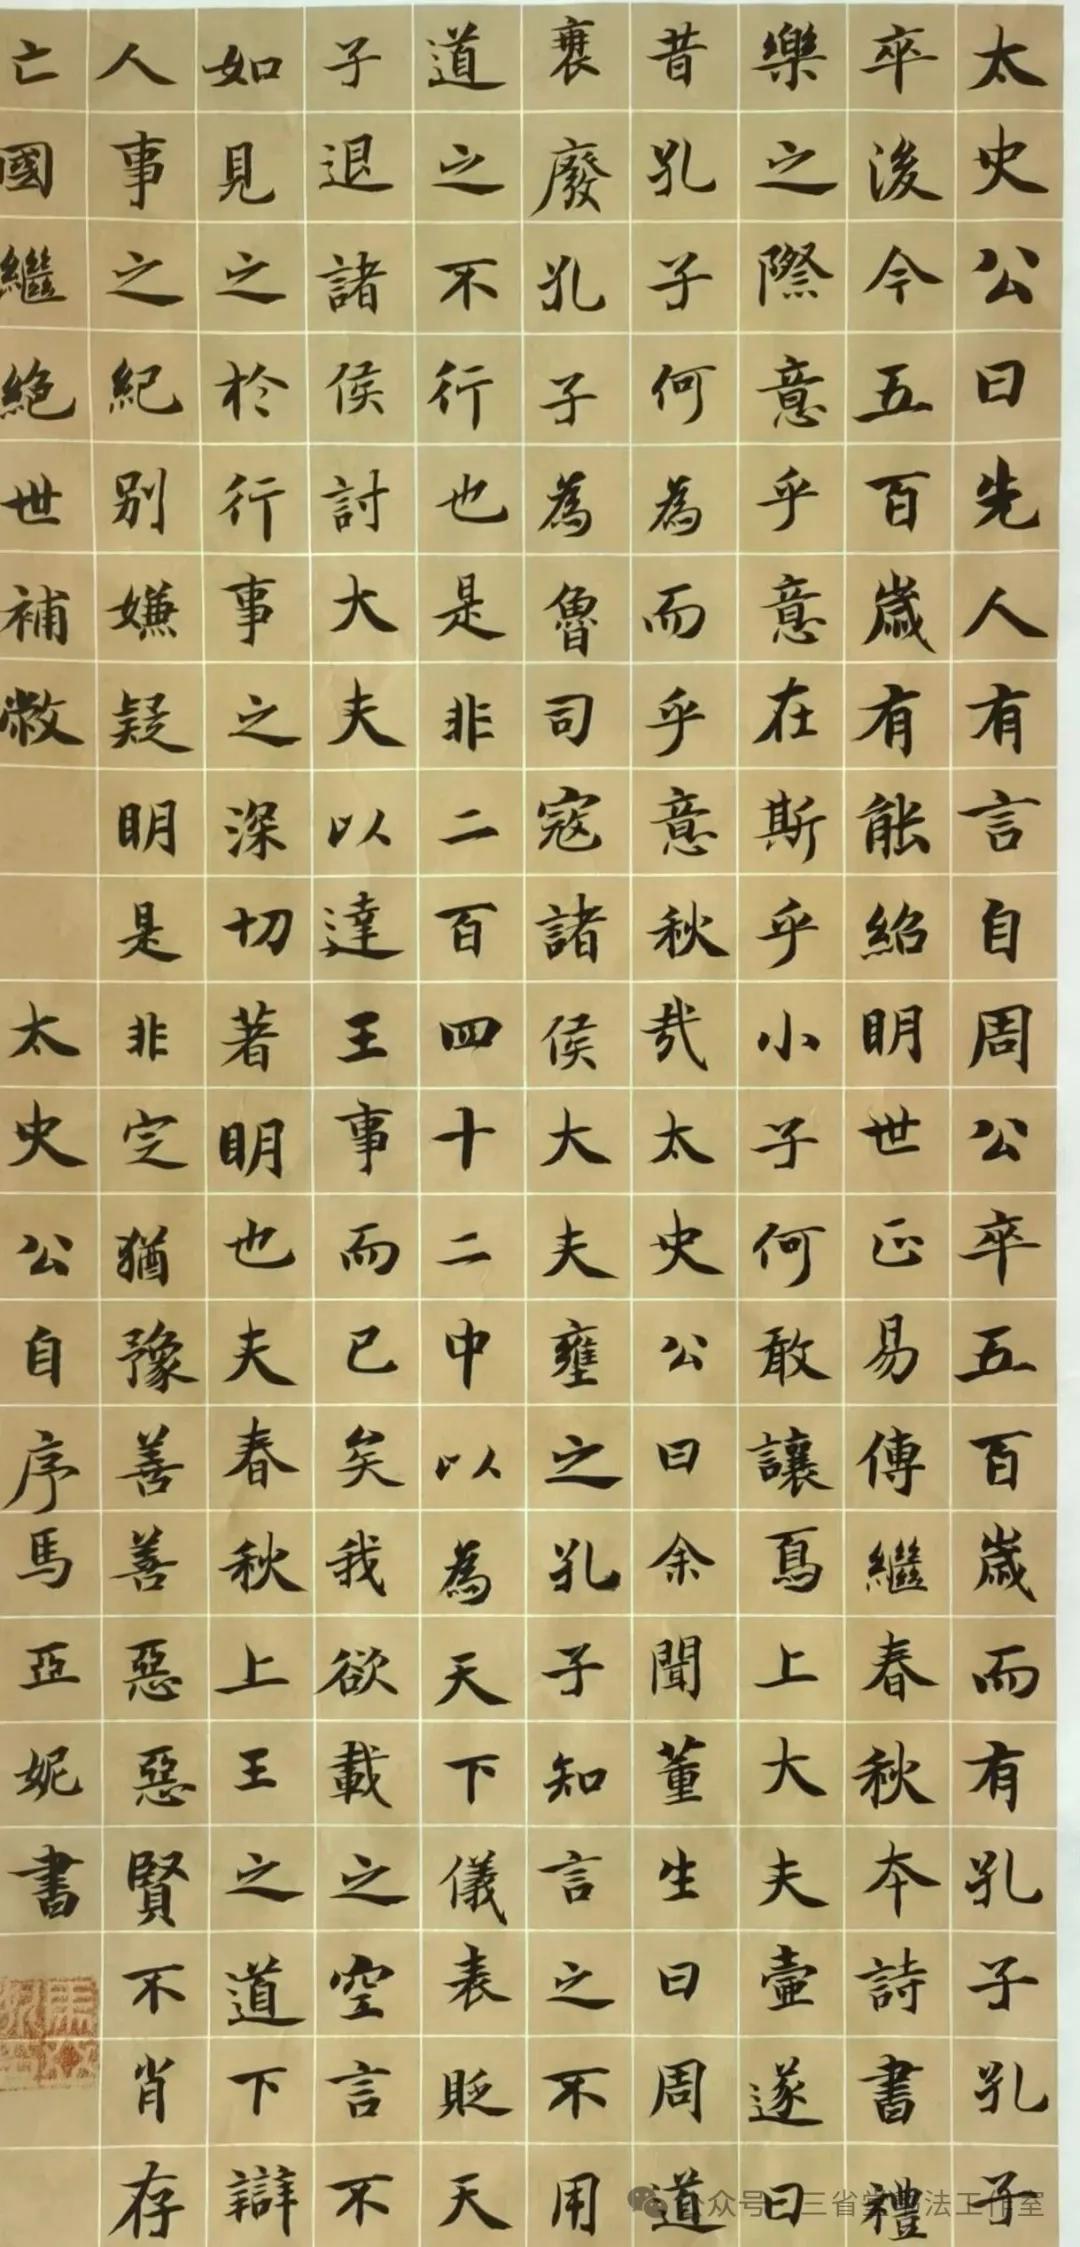 太史公曰先人有言自周公卒五百歲而有孔子孔子
卒後今五百歲有能紹明世正易傳繼春秋本詩書禮
樂之際意乎意在斯乎小子何敢讓焉上大夫壷遂曰
昔孔子何為而乎意秋哉太史公曰余聞董生曰周道
衰廢孔子為魯司寇諸侯大夫壅之孔子知言之不用
道之不行也是非二百四十二中以為天下儀表貶天
子退諸侯討大夫以達王事而已矣我欲載之空言不
如見之於行事之深切著明也夫春秋上王之道下辯
人事之紀別嫌疑明是非定猶豫善善惡惡賢不肖存
亡國繼絕世補敝
太史公自序馬亞妮書
公众号
三省堂书法工作室